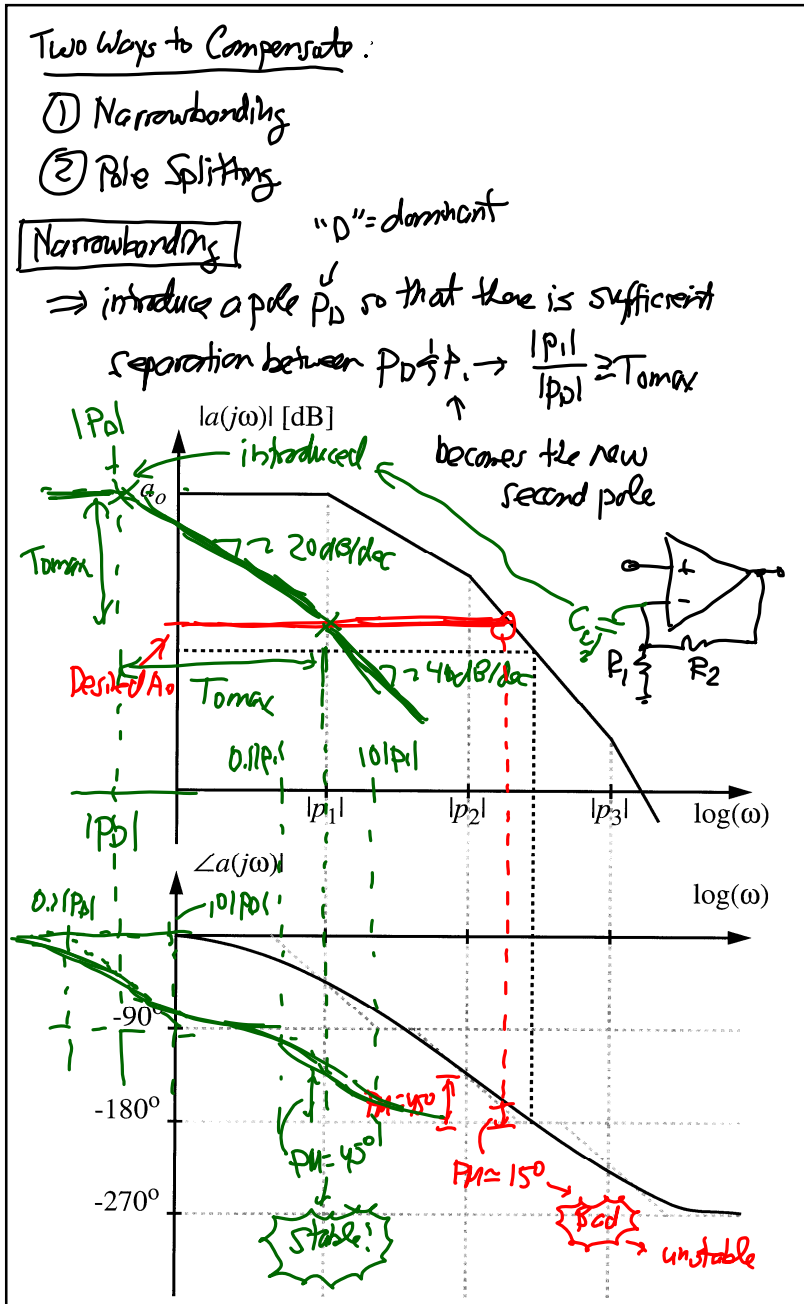 Two Ways to Compensate:
① Narrowbanding
② Pole Splitting
Narrowbanding
"D" = dominant
⇒ introduce a pole p_D so that there is sufficient
separation between p_D & p_1 → |p_1| / |p_D| ≅ Tomax
becomes the new
second pole
|P_D|
|a(jω)| [dB]
introduced
a_o
Tomax
~ 20dB/dec
Desired A_o
Tomax
~ 40dB/dec
C_c
+
-
R_1
R_2
0.1|p_1|
10|p_1|
|p_1|
|p_2|
|p_3|
log(ω)
|P_D|
∠a(jω)|
log(ω)
0.1|P_D|
10|P_D|
-90°
-180°
-270°
PM=45°
PM=45°
PM≃15°
Stable!
Bad
unstable